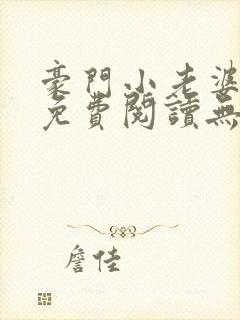 豪門小老婆
免費閱讀無
詹佳